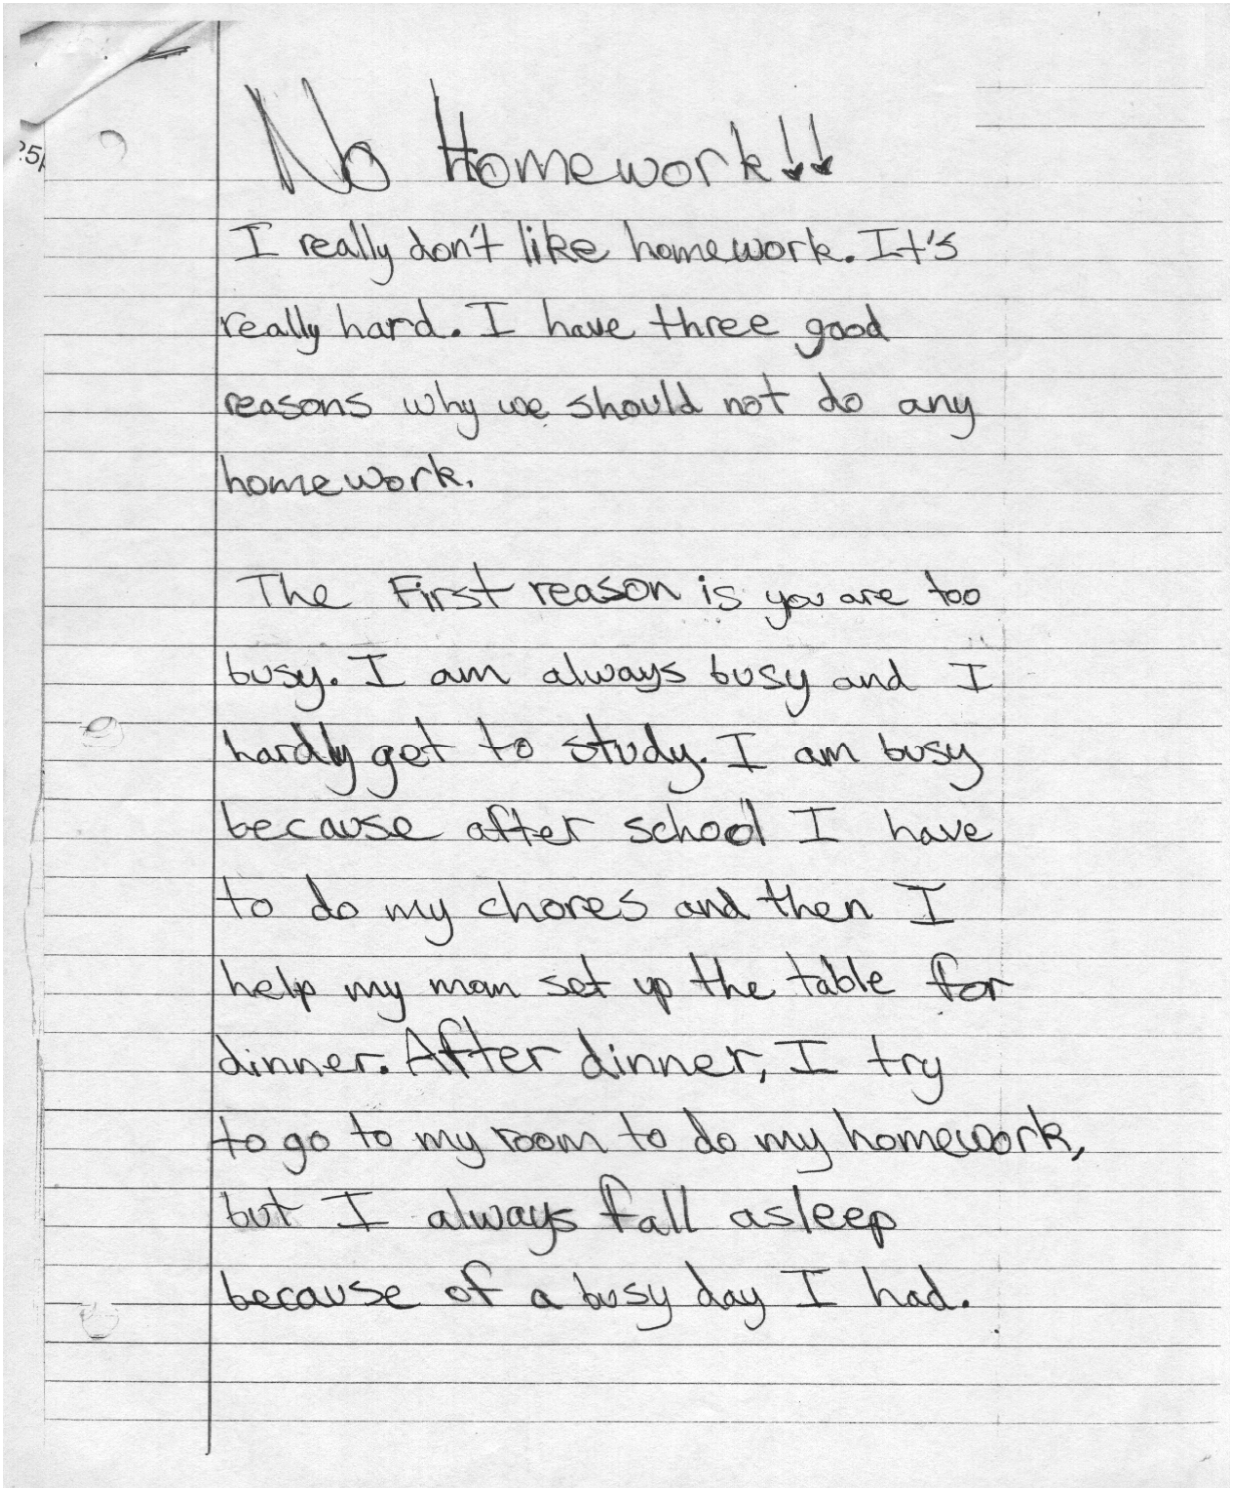 No Homework!!
I really don't like homework. It's
really hard. I have three good
reasons why we should not do any
homework.
The First reason is you are too
busy. I am always busy and I
hardly get to study. I am busy
because after school I have
to do my chores and then I
help my mom set up the table for
dinner. After dinner, I try
to go to my room to do my homework,
but I always fall asleep
because of a busy day I had.